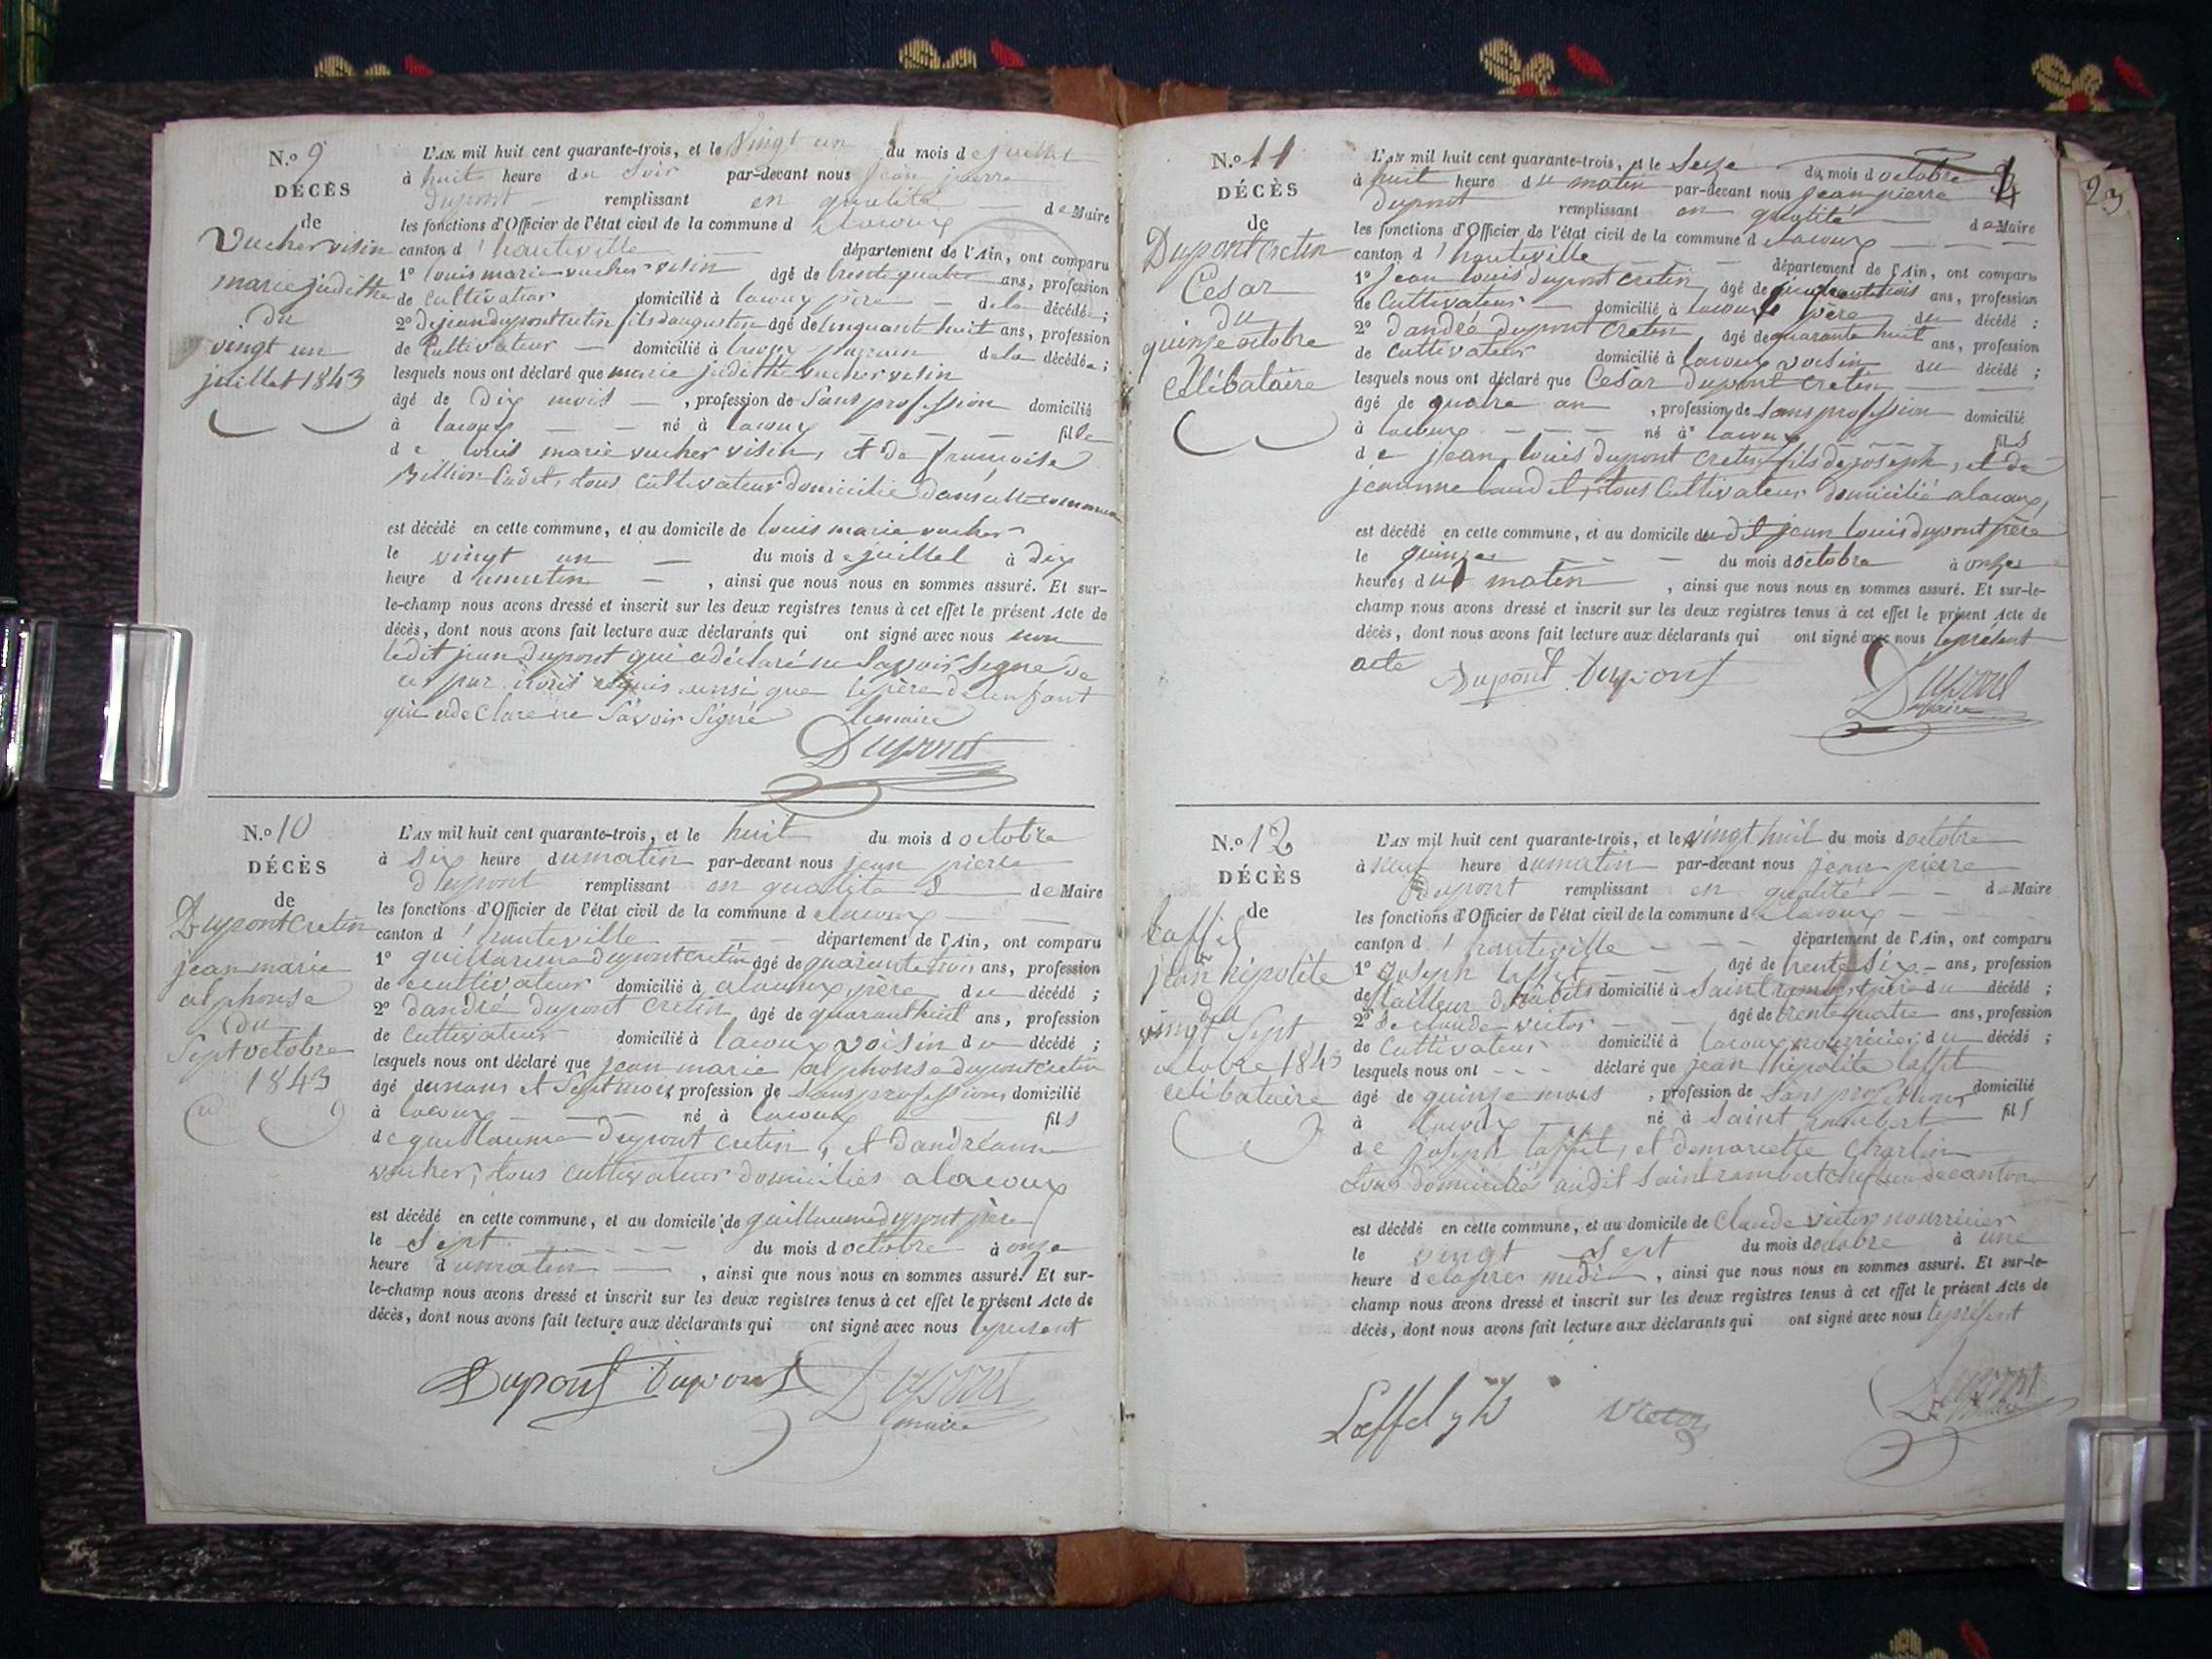 N.º 9
DÉCÈS
de
Vucher visin
marie judithe
du
vingt un
juillet 1843
L'AN mil huit cent quarante-trois, et le Vingt un du mois de juillet
à huit heure du soir par-devant nous jean pierre
Dupont remplissant en qualité de Maire
les fonctions d'Officier de l'état civil de la commune de lacoux
canton d'hauteville département de l'Ain, ont comparu
1º louis marie vucher visin âgé de trente quatre ans, profession
de Cultivateur domicilié à lacoux père de la décédée ;
2º de jean dupont cretin fils daugustin âgé de Cinquant huit ans, profession
de Cultivateur domicilié à lacoux de la décédée ;
lesquels nous ont déclaré que marie judithe vucher visin
âgé de Dix mois , profession de Sans profession domicilié
à lacoux né à lacoux fille
de louis marie vucher visin, et de françoise
Billion Cadet, tous Cultivateur domicilié dans cette commune
est décédé en cette commune, et au domicile de louis marie vucher
le vingt un du mois de juillet à dix
heure du matin , ainsi que nous nous en sommes assuré. Et sur-
le-champ nous avons dressé et inscrit sur les deux registres tenus à cet effet le présent Acte de
décès, dont nous avons fait lecture aux déclarants qui ont signé avec nous non
ledit jean Dupont qui a déclaré ne Savoir Signe de
ce par nous requis ainsi que le père de lenfant
qui a declare ne Savoir Signé le maire
Dupont
N.º 10
DÉCÈS
de
Dupont Cretin
jean marie
alphonse
du
Sept octobre
1843
L'AN mil huit cent quarante-trois, et le huit du mois d octobre
à Six heure du matin par-devant nous jean pierre
Dupont remplissant en qualité de Maire
les fonctions d'Officier de l'état civil de la commune de lacoux
canton d'hauteville département de l'Ain, ont comparu
1º guillaume dupont cretin âgé de quarante trois ans, profession
de cultivateur domicilié à alacoux père du décédé ;
2º dandré dupont cretin âgé de quarant huit ans, profession
de Cultivateur domicilié à lacoux voisin du décédé ;
lesquels nous ont déclaré que jean marie alphonse dupont cretin
âgé dunans et Sept mois, profession de Sans profession domicilié
à lacoux né à lacoux fils
de guillaume dupont cretin, et dandréanne
vucher, tous cultivateur domiciliés a lacoux
est décédé en cette commune, et au domicile de guillaume dupont père
le Sept du mois d octobre à onze
heure du matin , ainsi que nous nous en sommes assuré. Et sur-
le-champ nous avons dressé et inscrit sur les deux registres tenus à cet effet le présent Acte de
décès, dont nous avons fait lecture aux déclarants qui ont signé avec nous le present
Dupont Dupont Dupont
maire
N.º 11
DÉCÈS
de
Dupont Cretin
César
du
quinze octobre
célibataire
23
L'AN mil huit cent quarante-trois, et le Seize du mois d octobre
à huit heure du matin par-devant nous jean pierre
Dupont remplissant en qualité de Maire
les fonctions d'Officier de l'état civil de la commune de lacoux
canton d'hauteville département de l'Ain, ont comparu
1º jean louis dupont cretin âgé de quarante trois ans, profession
de Cultivateur domicilié à lacoux père du décédé ;
2º dandré dupont cretin âgé de quarante huit ans, profession
de Cultivateur domicilié à lacoux voisin du décédé ;
lesquels nous ont déclaré que César dupont cretin
âgé de quatre an , profession de Sans profession domicilié
à lacoux né à lacoux fils
de jean louis dupont cretin fils de joseph, et de
jeanne baudet, tous Cultivateur domicilié a lacoux,
est décédé en cette commune, et au domicile du dit jean louis dupont père
le quinze du mois d octobre à onze
heures du matin , ainsi que nous nous en sommes assuré. Et sur-le-
champ nous avons dressé et inscrit sur les deux registres tenus à cet effet le présent Acte de
décès, dont nous avons fait lecture aux déclarants qui ont signé avec nous le présent
acte
Dupont Dupont Dupont
maire
N.º 12
DÉCÈS
de
Laffet
jean hipolite
du
vingt Sept
octobre 1843
célibataire
L'AN mil huit cent quarante-trois, et le vingt huit du mois d octobre
à neuf heure du matin par-devant nous jean pierre
Dupont remplissant en qualité de Maire
les fonctions d'Officier de l'état civil de la commune de lacoux
canton d'hauteville département de l'Ain, ont comparu
1º joseph laffet âgé de trente Six ans, profession
de tailleur dhabits domicilié à Saint rambert père du décédé ;
2º de claude victor âgé de trente quatre ans, profession
de Cultivateur domicilié à lacoux nourricier du décédé ;
lesquels nous ont déclaré que jean hipolite laffet
âgé de quinze mois , profession de Sans profession domicilié
à lacoux né à Saint rambert fils
de joseph laffet, et de mariette Charlin
tous domicilié audit Saint rambert chef lieu de canton
est décédé en cette commune, et au domicile de Claude victor nourricier
le vingt Sept du mois d octobre à une
heure de lapres midi , ainsi que nous nous en sommes assuré. Et sur-le-
champ nous avons dressé et inscrit sur les deux registres tenus à cet effet le présent Acte de
décès, dont nous avons fait lecture aux déclarants qui ont signé avec nous le présent
Victor Dupont